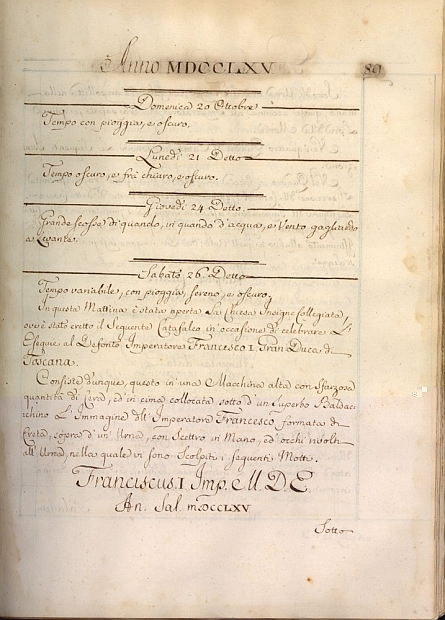 Anno MDCCLXV 89
Domenica 20 Ottobre
Tempo con pioggia, e oscuro.
Lunedì 21 Detto
Tempo oscuro, e frà chiaro, e oscuro.
Giovedì 24 Detto
Grande scosse di quando, in quando d'acqua, e Vento gagliardo
a Levante.
Sabato 26 Detto
Tempo variabile, con pioggia, sereno, e oscuro,
In questa Mattina è stata aperta La Chiesa Insigne Collegiata,
ov'è stato eretto il Seguente Catafalco, in occasione di celebrare L'
Esequie al Defonto Imperatore Francesco I. Gran Duca di
Toscana.
Consiste dunque, questo in una Macchina alta con sfarzosa
quantità di Cera, ed in cima collocata sotto d'un Superbo Baldac
chino L'Immagine dell'Imperatore Francesco formata di
Creta, sopra d'un Urna, con Scettro in Mano, ed'occhi risolti
all'Urna, nella quale vi sono Scolpiti i seguenti Motti.
Franciscus. I. Imp. M. D. E.
An. Sal. MDCCLXV
Sotto